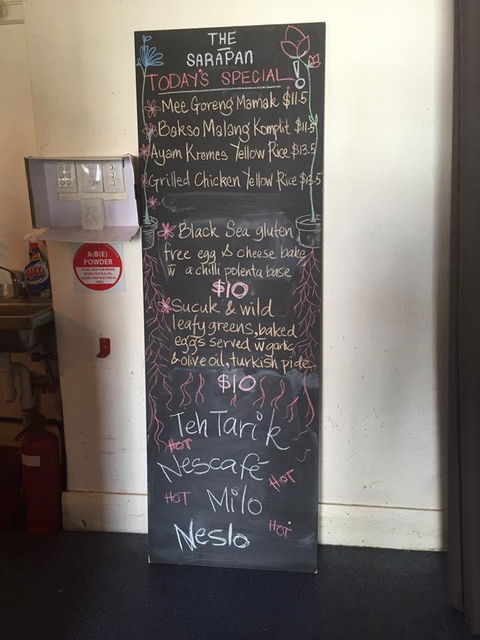 THE
SARAPAN
TODAY'S SPECIAL!
Mee Goreng Mamak $11.5
Bakso Malang Komplit $11.5
Ayam Kremes Yellow Rice $13.5
Grilled Chicken Yellow Rice $13.5
Black Sea gluten
free egg & cheese bake
w a chilli polenta base
$10
Sucuk & wild
leafy greens, baked
eggs served w garlic
& olive oil, turkish pide.
$10
Teh Tarik
HOT
Nescafé
HOT
HOT
Milo
HOT
Neslo
A:B(E)
POWDER